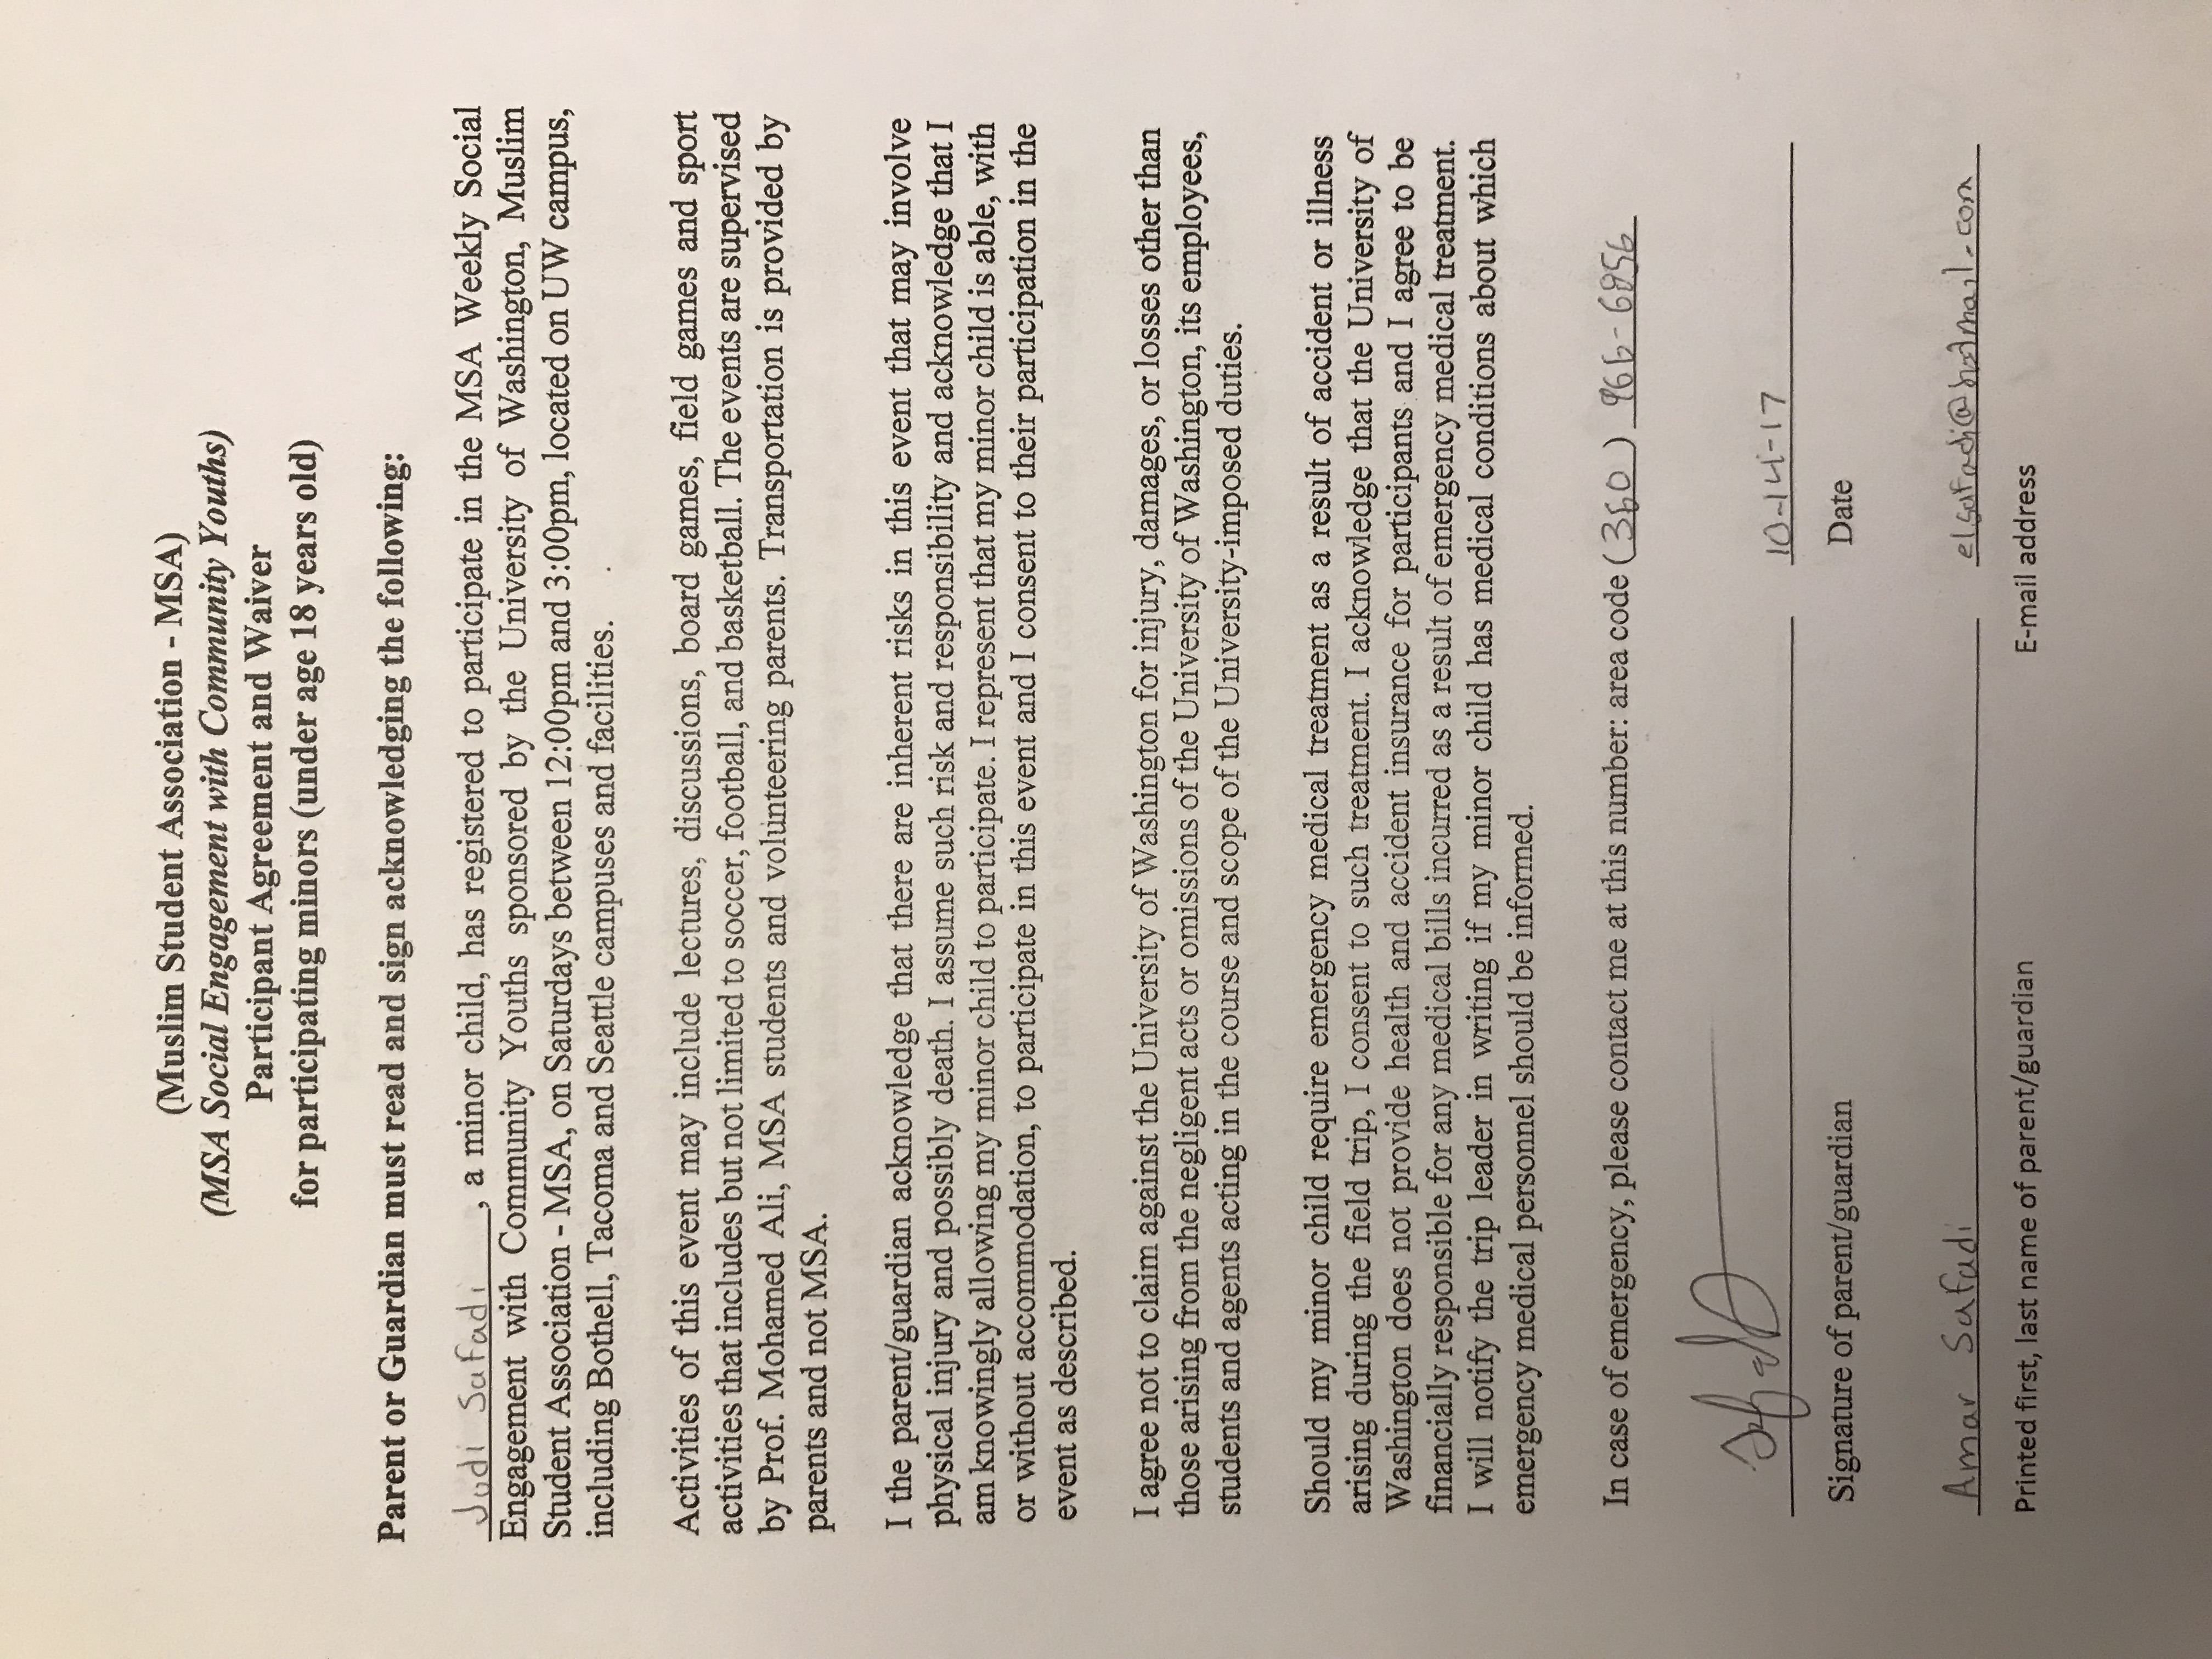 (Muslim Student Association - MSA)
(MSA Social Engagement with Community Youths)
Participant Agreement and Waiver
for participating minors (under age 18 years old)
Parent or Guardian must read and sign acknowledging the following:
Judi Safadi, a minor child, has registered to participate in the MSA Weekly Social
Engagement with Community Youths sponsored by the University of Washington, Muslim
Student Association - MSA, on Saturdays between 12:00pm and 3:00pm, located on UW campus,
including Bothell, Tacoma and Seattle campuses and facilities.
Activities of this event may include lectures, discussions, board games, field games and sport
activities that includes but not limited to soccer, football, and basketball. The events are supervised
by Prof. Mohamed Ali, MSA students and volunteering parents. Transportation is provided by
parents and not MSA.
I the parent/guardian acknowledge that there are inherent risks in this event that may involve
physical injury and possibly death. I assume such risk and responsibility and acknowledge that I
am knowingly allowing my minor child to participate. I represent that my minor child is able, with
or without accommodation, to participate in this event and I consent to their participation in the
event as described.
I agree not to claim against the University of Washington for injury, damages, or losses other than
those arising from the negligent acts or omissions of the University of Washington, its employees,
students and agents acting in the course and scope of the University-imposed duties.
Should my minor child require emergency medical treatment as a result of accident or illness
arising during the field trip, I consent to such treatment. I acknowledge that the University of
Washington does not provide health and accident insurance for participants and I agree to be
financially responsible for any medical bills incurred as a result of emergency medical treatment.
I will notify the trip leader in writing if my minor child has medical conditions about which
emergency medical personnel should be informed.
In case of emergency, please contact me at this number: area code (360) 966-6856
10-14-17
Signature of parent/guardian Date
Amar Safadi elsafadi@hotmail.com
Printed first, last name of parent/guardian E-mail address